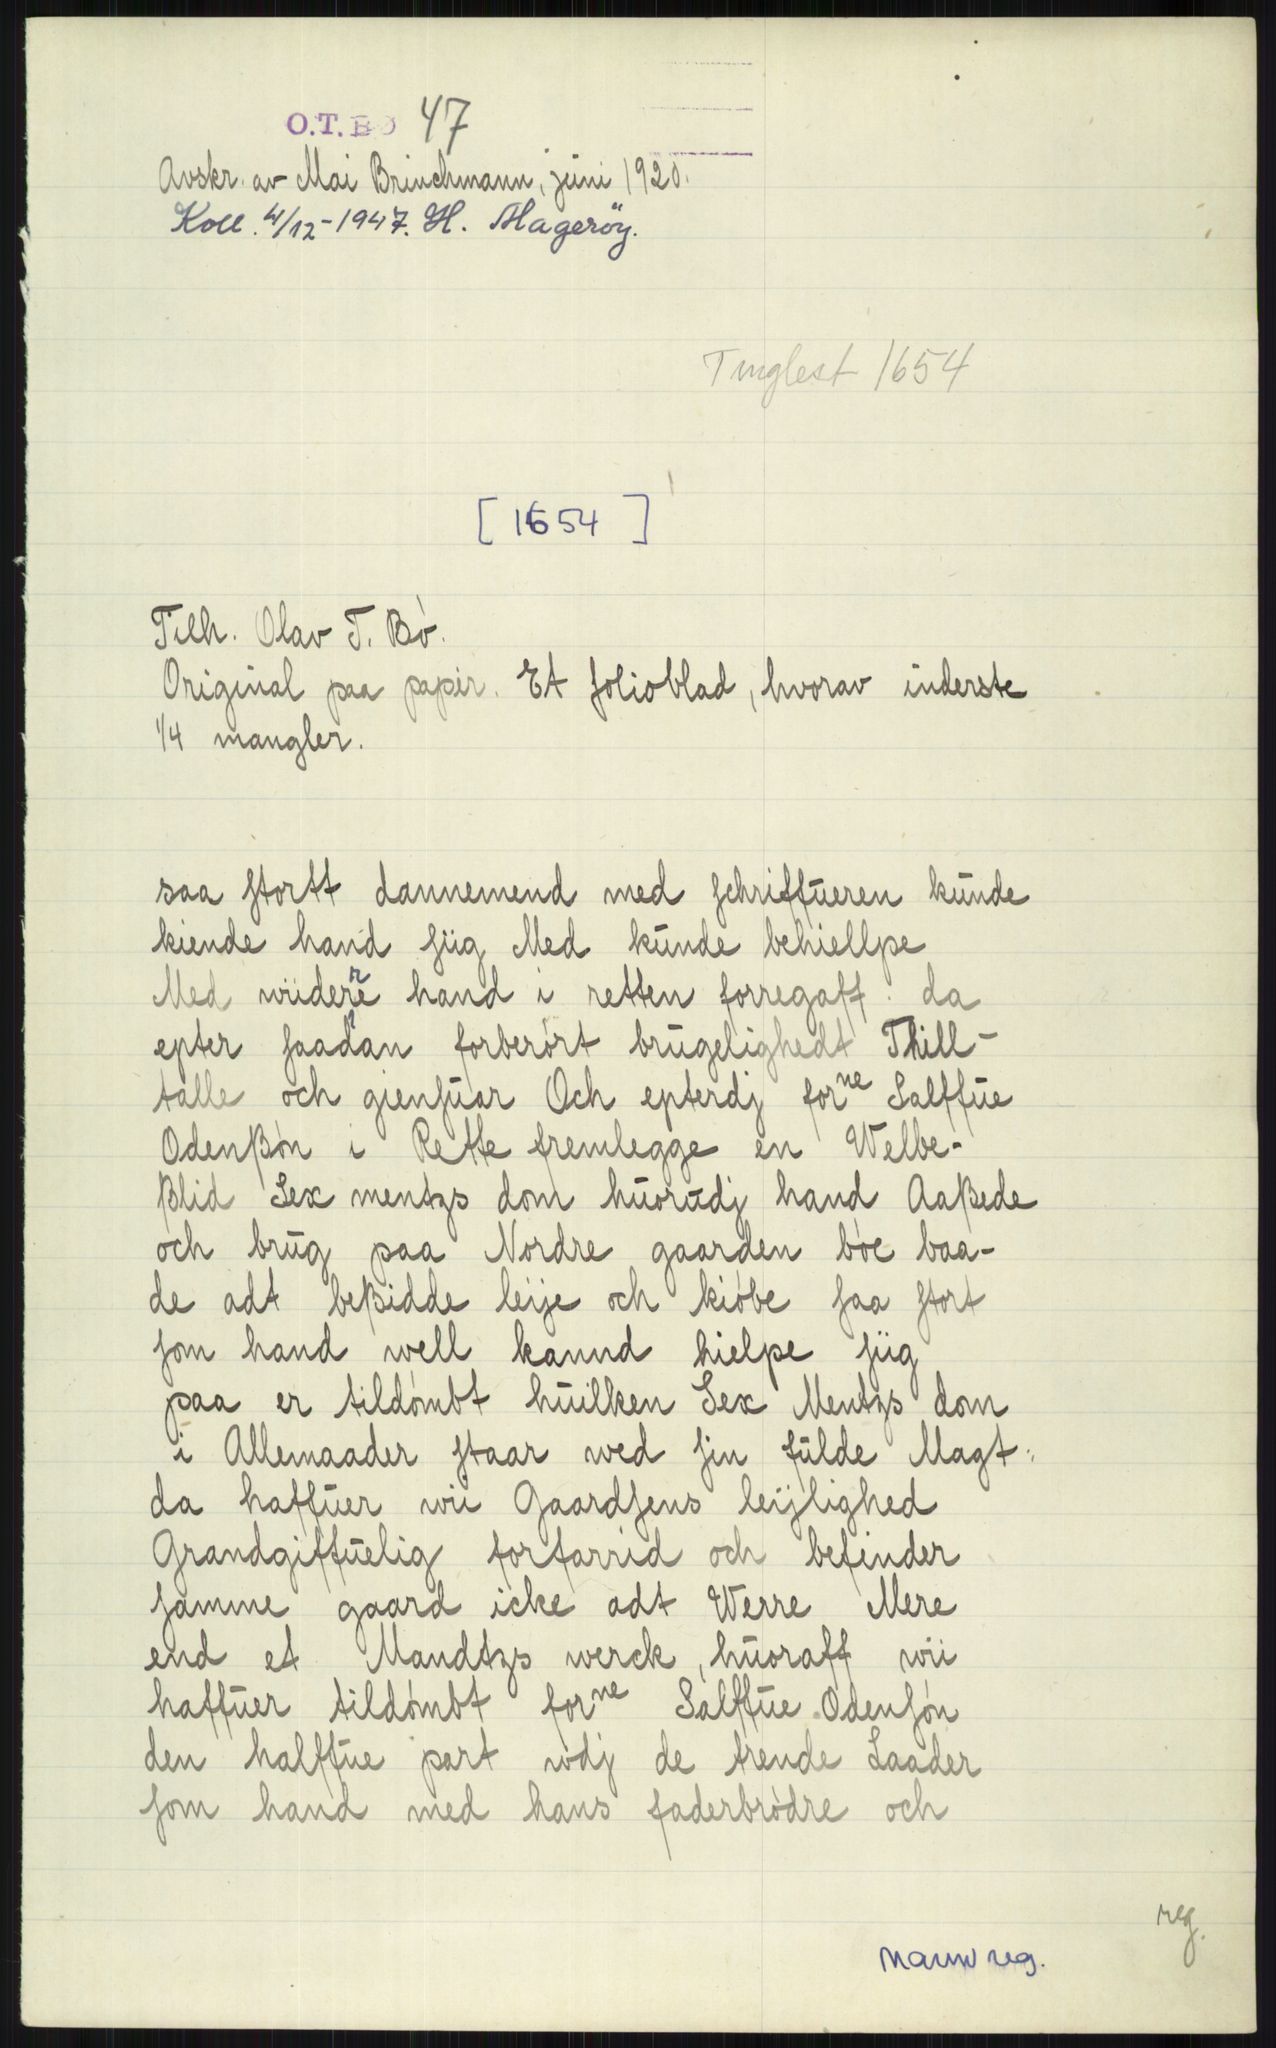 O.T. BØ 47
Avskr. av Mai Brinchmann, juni 1920.
Koll. 4/12-1947. H. Magerøy.
Tinglest 1654
[ 1654 ]
Tilh. Olav T. Bø.
Original paa papir. Et folioblad, hvorav inderste
1/4 mangler.
saa stortt dannemend med schriffueren kunde
kiende hand siig Med kunde behiellpe
Med wiiderre hand i retten forregaff. da
epter saadan forberørt brugelighedt Thill-
talle och giensuar Och epterdj forne Salffue
Odenßøn i Rette fremlegge en Welbe-
ßlid Sex mentzs dom huorudj hand Aaßede
och brug paa Nordre gaarden bøe baa-
de adt beßidde leije och kiøbe saa stort
som hand well kannd hielpe siig
paa er tildømbt huilken Sex Mentzs dom
i Allemaader staar wed sin fulde Magt:
da haffuer wii Gaardsens leijlighed
Grandgiffuelig forfarrid och befinder
samme gaard icke adt Werre Mere
end et Mandtzs werck, huoraff wii
haffuer tildømbt forne Salffue Odensøn
den halffue part wdj de trende Laader
som hand med hans faderbrødre och
reg.
Namnreg.